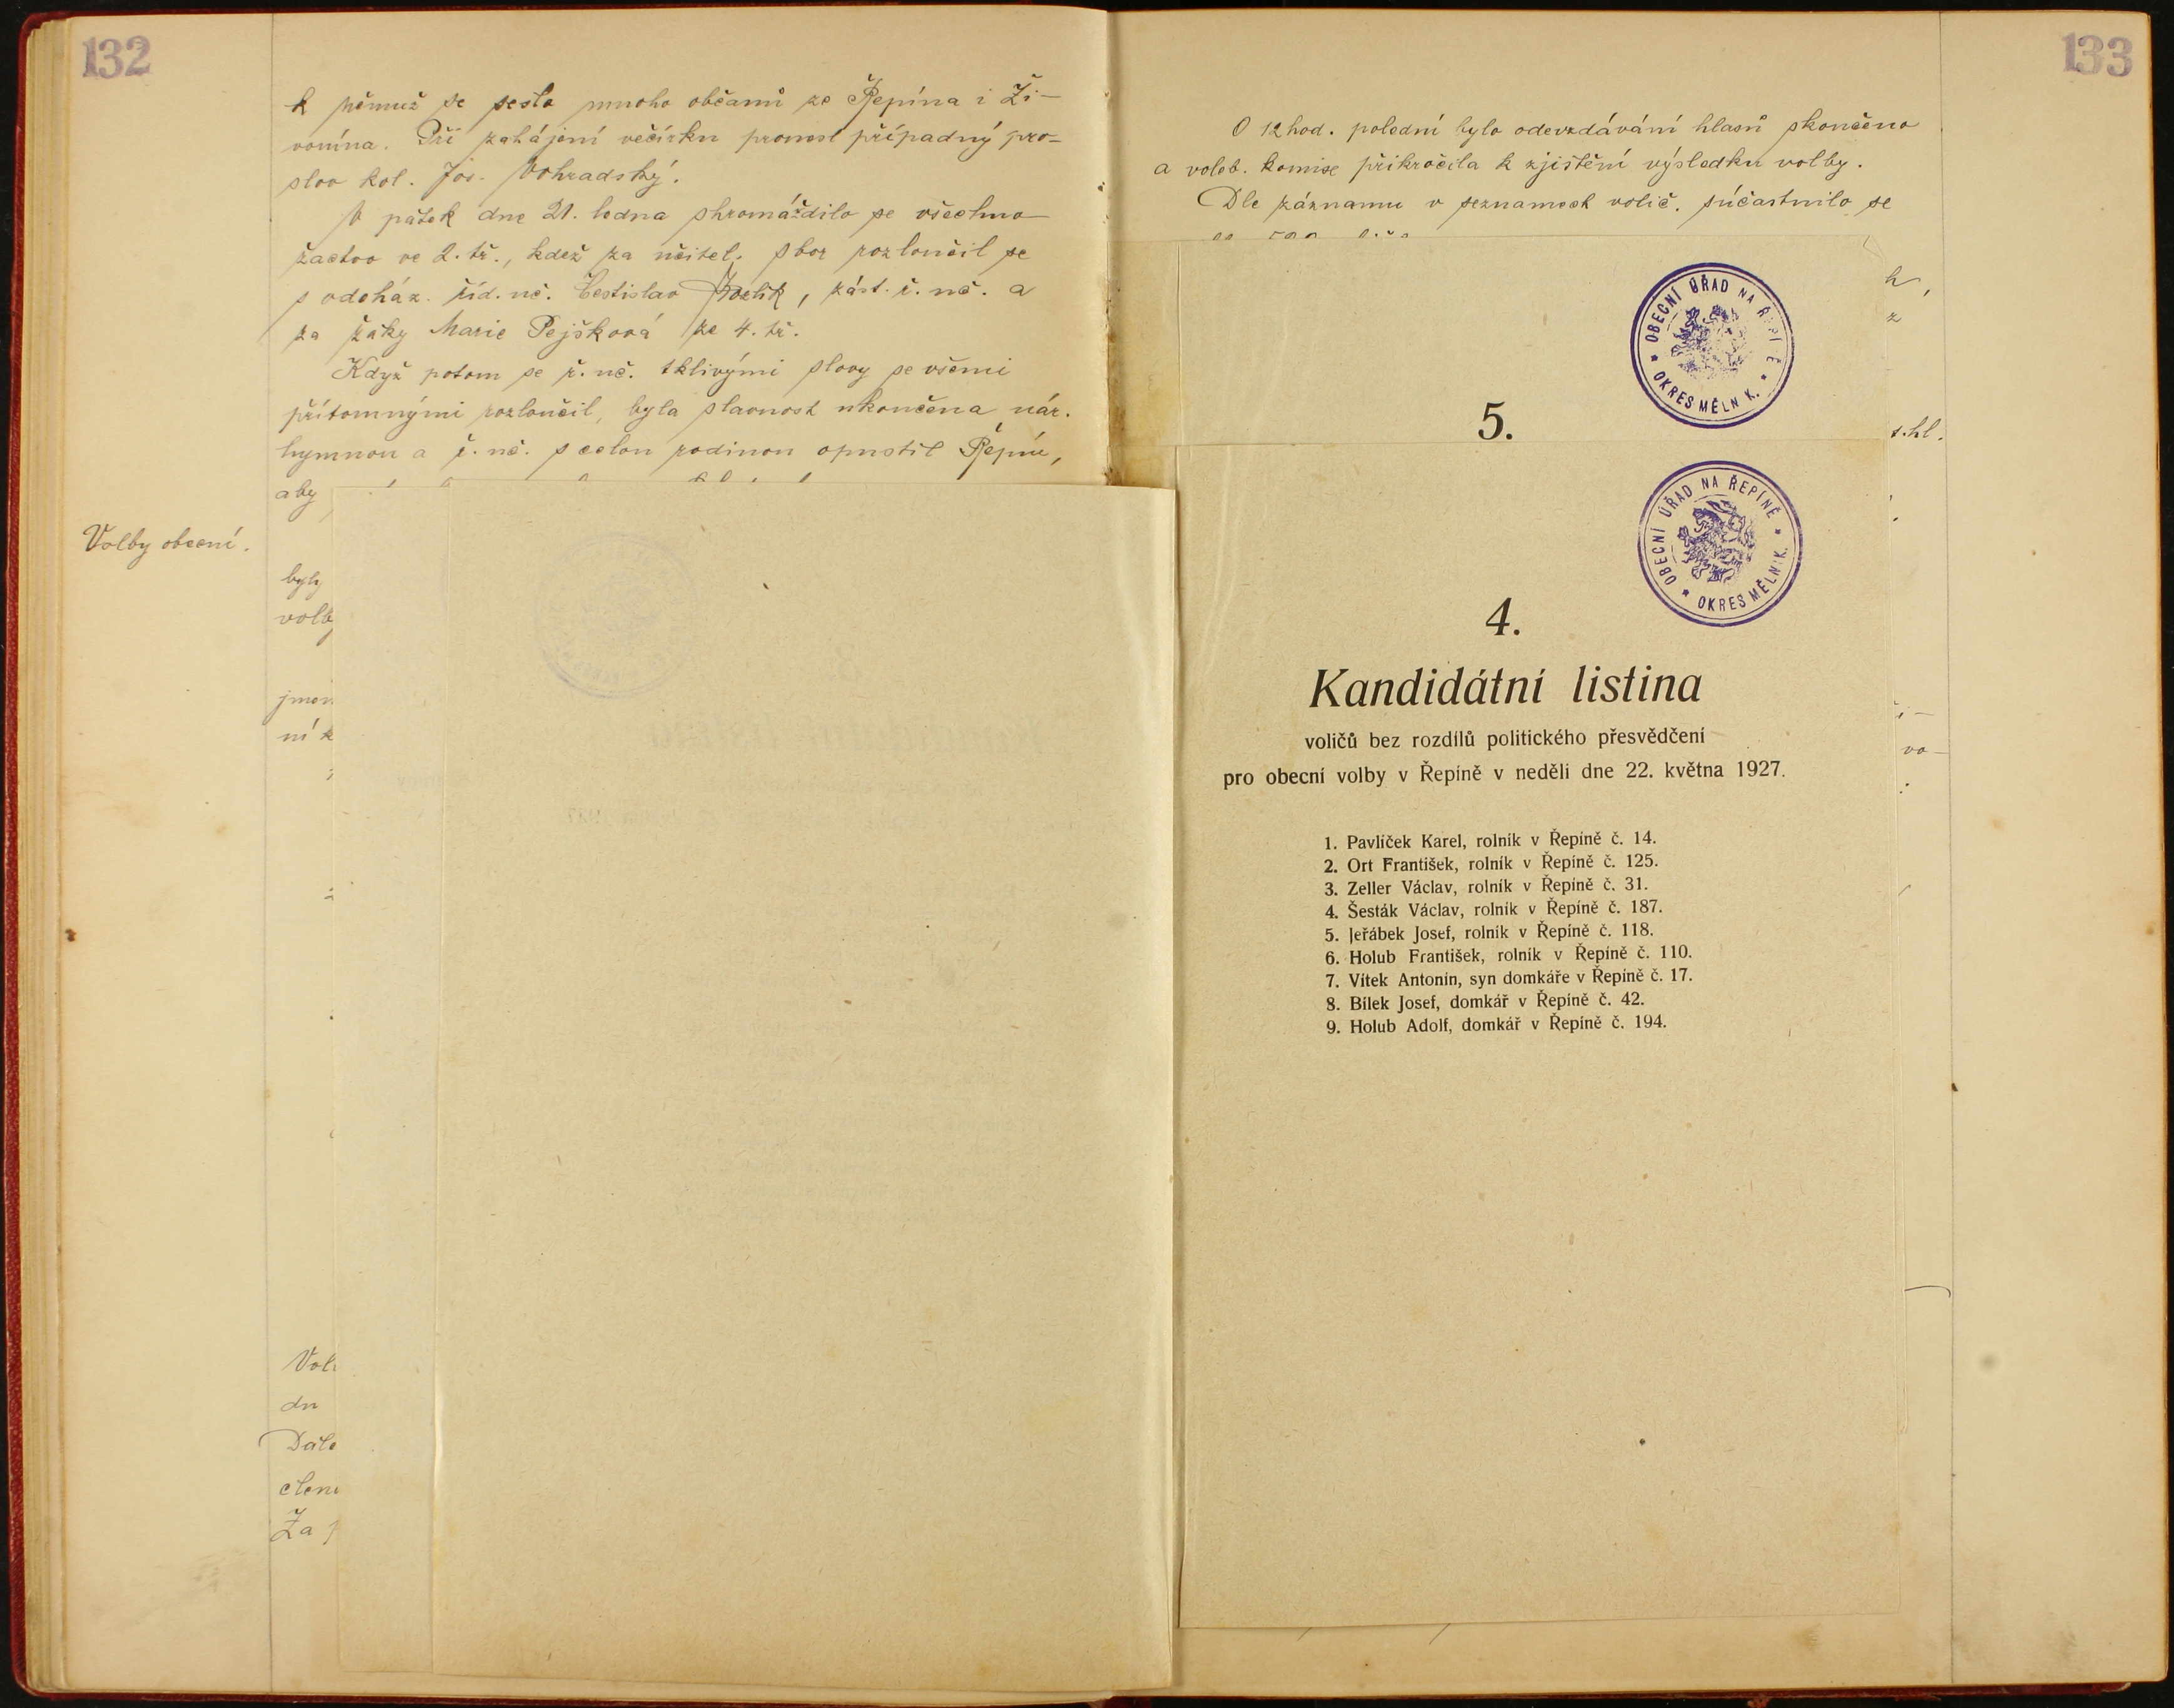 132
k němuž se sešlo mnoho občanů ze Řepína i Ži-
vonína. Při zahájení večírku pronesl případný pro-
slov kol. Jos. Vohradský.
V pátek dne 21. ledna shromáždilo se všechno
žactvo ve 2. tř., kdež za učitel. sbor rozloučil se
s odcház. říd. uč. Čestislav , zást. ř. uč. a
za žáky Marie Pejšková ze 4. tř.
Když potom se ř. uč. tklivými slovy se všemi
přítomnými rozloučil, byla slavnost ukončena nár.
hymnou a ř. uč. s celou rodinou opustil Řepín,
aby
Volby obecní.
byly
volby
jmen
ní k
Vol
dn
Dále
členů
Za
133
O 12 hod. polední bylo odevzdávání hlasů skončeno
a voleb. komise přikročila k zjištění výsledku volby.
Dle záznamu v seznamech volič. súčastnilo se
h,
z
t. hl.
vo-
OBECNÍ ÚŘAD NA ŘEPÍ Ě
* OKRES MĚLN K. *
5.
OBECNÍ ÚŘAD NA ŘEPÍNĚ
* OKRES MĚLNÍK. *
4.
Kandidátní listina
voličů bez rozdílů politického přesvědčení
pro obecní volby v Řepíně v neděli dne 22. května 1927.
1. Pavlíček Karel, rolník v Řepíně č. 14.
2. Ort František, rolník v Řepíně č. 125.
3. Zeller Václav, rolník v Řepíně č. 31.
4. Šesták Václav, rolník v Řepíně č. 187.
5. Jeřábek Josef, rolník v Řepíně č. 118.
6. Holub František, rolník v Řepíně č. 110.
7. Vítek Antonín, syn domkáře v Řepíně č. 17.
8. Bílek Josef, domkář v Řepíně č. 42.
9. Holub Adolf, domkář v Řepíně č. 194.